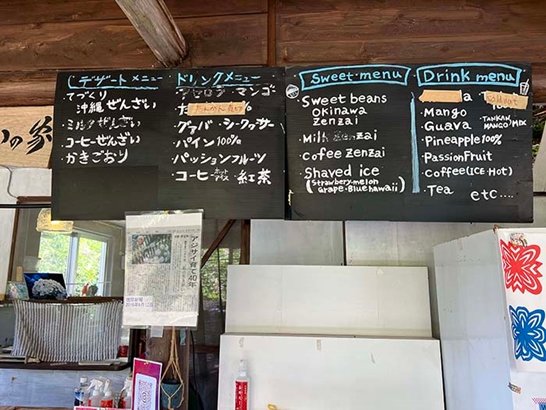 デザートメニュー
てづくり
沖縄ぜんざい
ミルクぜんざい
コーヒーぜんざい
かきごおり
ドリンクメニュー
マンゴー
グァバ・シークヮーサー
パイン 100%
パッションフルーツ
コーヒー ホット アイス 紅茶
Sweet・menu
Sweet beans
OKinawa
Zenzai
Milk zenzai
Cofee zenzai
Shaved ice
(Strawberry・melon
grape・Blue hawaii)
Drink menu
Mango
Guava TANKAN
MANGO MIX
Pineapple 100%
PassionFruit
Coffee (ICE・Hot)
Tea
etc....
の家
アジサイ育て40年